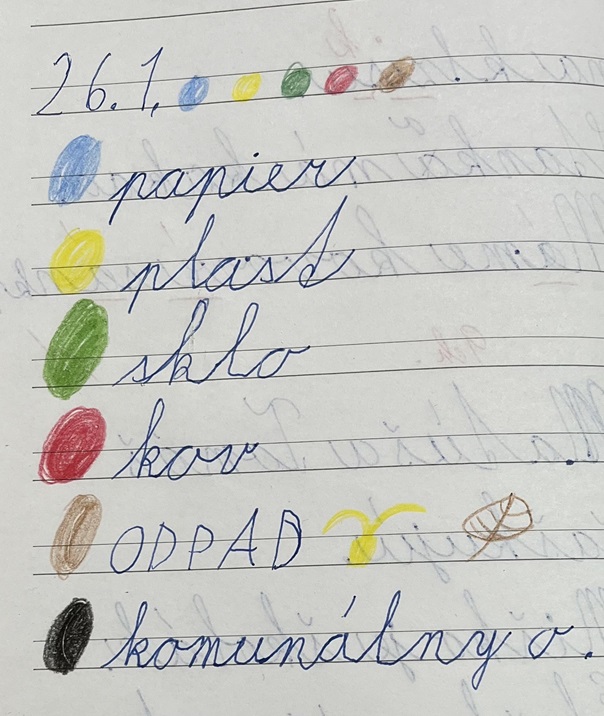 26.1.
papier
plast
sklo
kov
ODPAD
komunálny o.